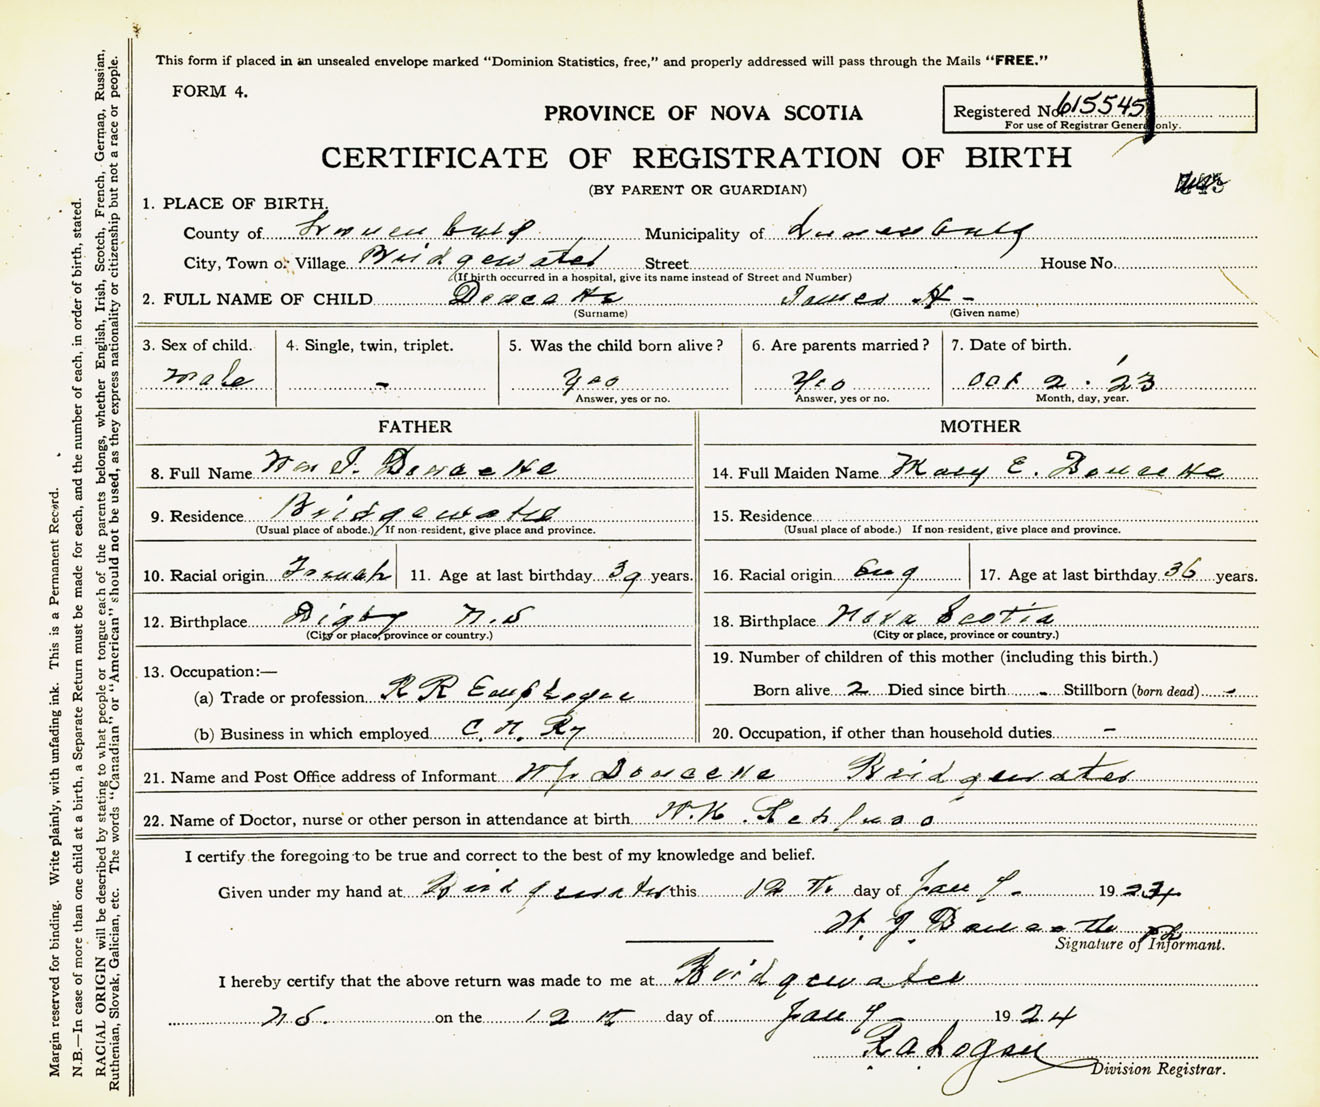 This form if placed in an unsealed envelope marked "Dominion Statistics, free," and properly addressed will pass through the Mails "FREE."
FORM 4.
PROVINCE OF NOVA SCOTIA
Registered No. 615545
For use of Registrar General only.
CERTIFICATE OF REGISTRATION OF BIRTH
(BY PARENT OR GUARDIAN)
1. PLACE OF BIRTH.
County of Lunenburg Municipality of Lunenburg
City, Town or Village Bridgewater Street House No.
(If birth occurred in a hospital, give its name instead of Street and Number)
2. FULL NAME OF CHILD Doucette James H -
(Surname) (Given name)
3. Sex of child. 4. Single, twin, triplet. 5. Was the child born alive? 6. Are parents married? 7. Date of birth.
Male - Yes Yes Oct 2. '23
Answer, yes or no. Answer, yes or no. Month, day, year.
FATHER MOTHER
8. Full Name Wm J. Doucette 14. Full Maiden Name Mary E. Doucette
9. Residence Bridgewater 15. Residence
(Usual place of abode.) If non-resident, give place and province. (Usual place of abode.) If non-resident, give place and province.
10. Racial origin French 11. Age at last birthday 39 years. 16. Racial origin Eng 17. Age at last birthday 36 years.
12. Birthplace Digby N.S 18. Birthplace Nova Scotia
(City or place, province or country.) (City or place, province or country.)
13. Occupation:— 19. Number of children of this mother (including this birth.)
(a) Trade or profession R R Employee Born alive 2 Died since birth - Stillborn (born dead) -
(b) Business in which employed C. N. Ry 20. Occupation, if other than household duties -
21. Name and Post Office address of Informant W J Doucette Bridgewater
22. Name of Doctor, nurse or other person in attendance at birth
I certify the foregoing to be true and correct to the best of my knowledge and belief.
Given under my hand at Bridgewater this 12 th day of Jany. 1924
W. J. Doucette
Signature of Informant.
I hereby certify that the above return was made to me at Bridgewater
N S. on the 12 th day of Jany 1924
R. A. Logan
Division Registrar.
Margin reserved for binding. Write plainly, with unfading ink. This is a Permanent Record.
N.B.—In case of more than one child at a birth, a Separate Return must be made for each, and the number of each, in order of birth, stated.
RACIAL ORIGIN will be described by stating to what people or tongue each of the parents belongs, whether English, Irish, Scotch, French, German, Russian,
Ruthenian, Slovak, Galician, etc. The words "Canadian" or "American" should not be used, as they express nationality or citizenship but not a race or people.